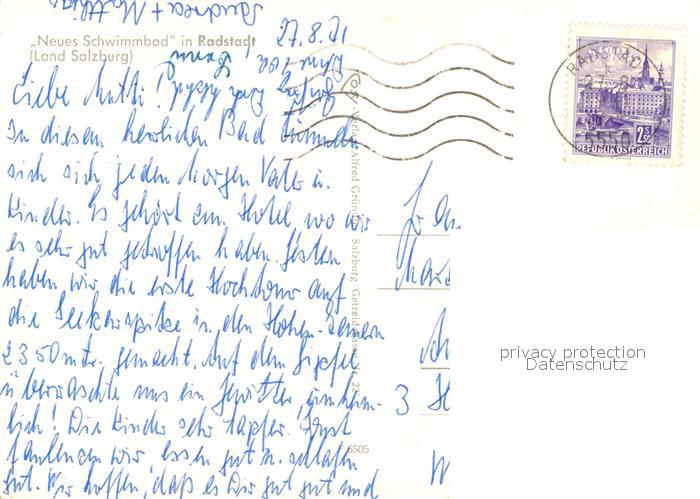 „Neues Schwimmbad" in Radstadt
(Land Salzburg)
27.8.71
Liebe Mutti!
In diesem herrlichen Bad tummeln
sich jeden Morgen Vater u.
Kinder. Es gehört zum Hotel, wo wir
es sehr gut getroffen haben. Gestern
haben wir die erste Hochtour auf
die Seekarspitze in den Hohen-Tauern
2350 mtr. gemacht. Auf dem Gipfel
überraschte uns ein Gewitter,
lich! Die Kinder sehr tapfer. Sonst
faulenzen wir, essen gut u. schlafen
gut. Wir hoffen, daß es Dir gut geht und
Andrea + Matthias
Verlag Alfred Gründler, Salzburg, Getreidegasse Nr. 22
6505
3 H
W
RADSTADT
2 S 50
REPUBLIK ÖSTERREICH
privacy protection
Datenschutz